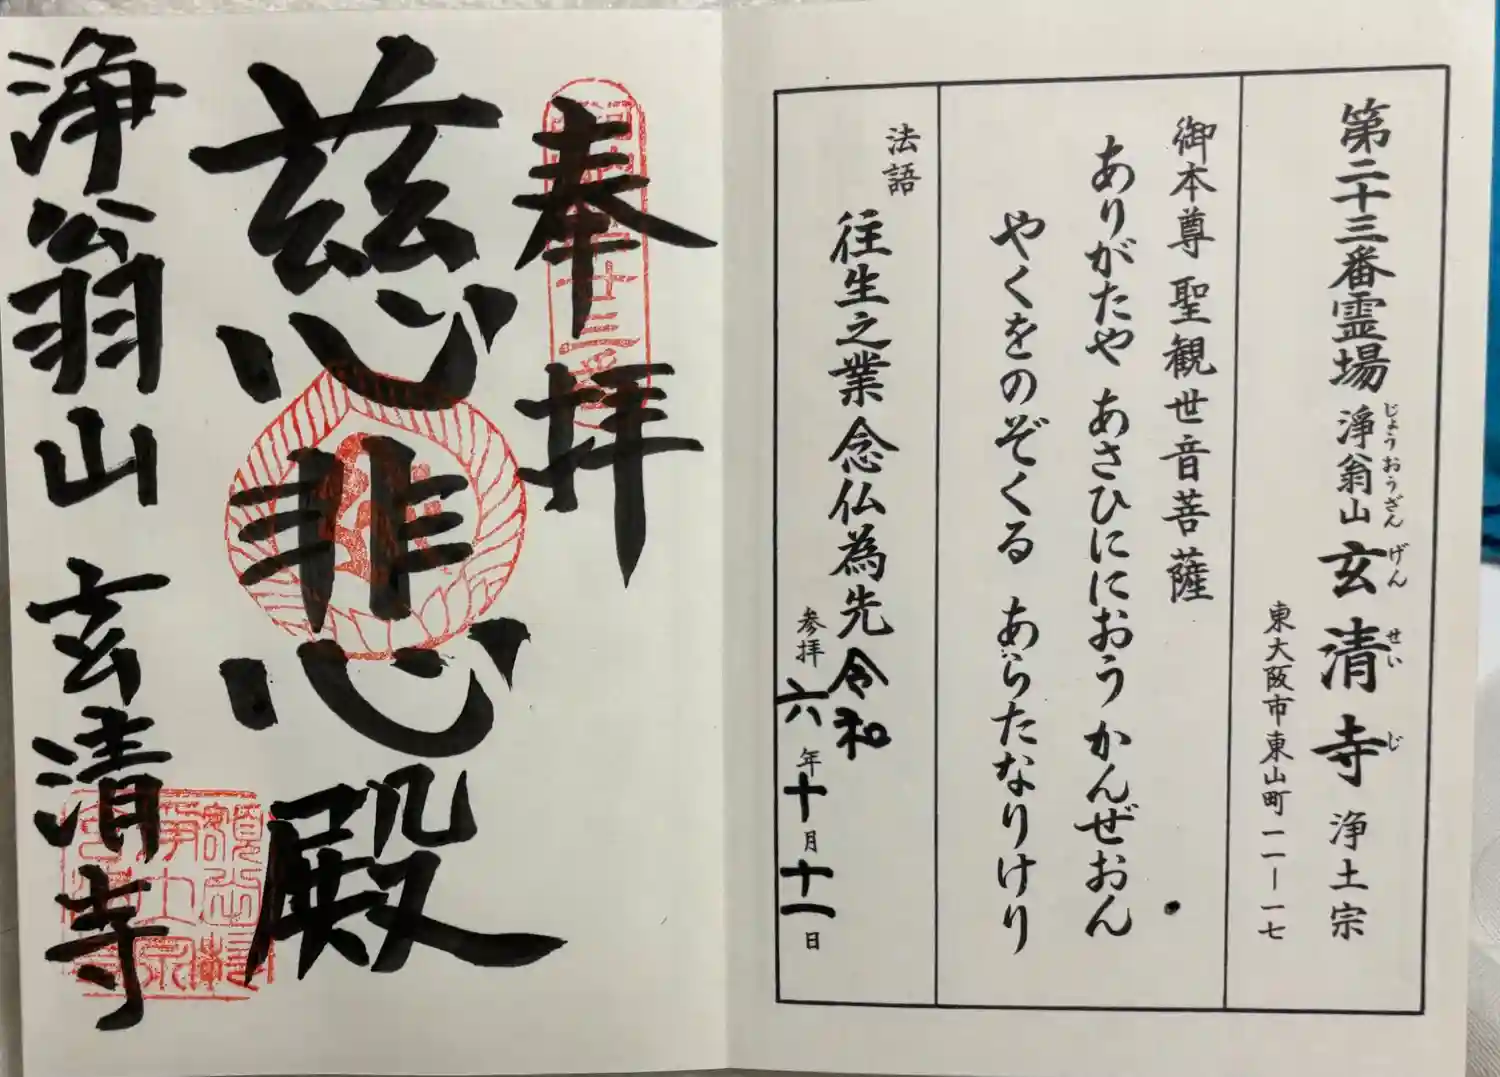 第二十三番霊場 浄翁山 玄清寺 浄土宗
じょうおうざん げんせいじ
東大阪市東山町一一ー一七
御本尊 聖観世音菩薩
ありがたや あさひににおう かんぜおん
やくをのぞくる あらたなりけり
法語
往生之業念仏為先
参拝 令和六年十月十一日
奉拝
慈悲殿
浄翁山 玄清寺